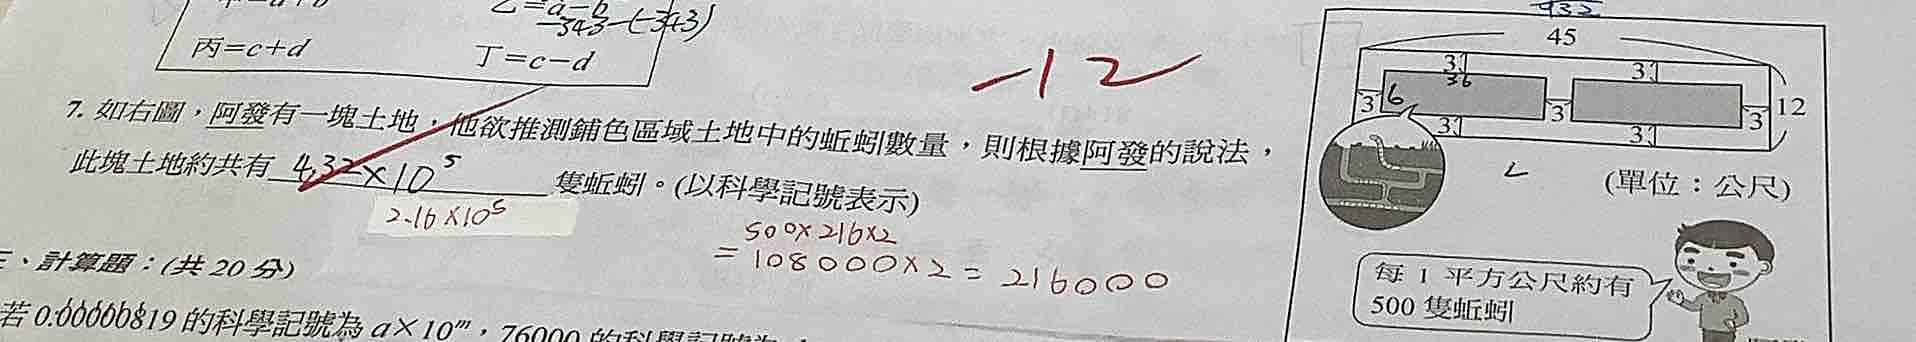 乙=a−b
-343-(-343)
丙=c+d
丁=c−d
-12
7. 如右圖，阿發有一塊土地，他欲推測鋪色區域土地中的蚯蚓數量，則根據阿發的說法，
此塊土地約共有 4.32×10⁵ 隻蚯蚓。(以科學記號表示)
2.16×10⁵
500×216×2
=108000×2=216000
三、計算題：(共 20 分)
的科學記號為 a×10ᵐ，76000 的科學記號為
432
45
3 3
36
3 6 3 3 12
3 3
(單位：公尺)
每 1 平方公尺約有
500 隻蚯蚓